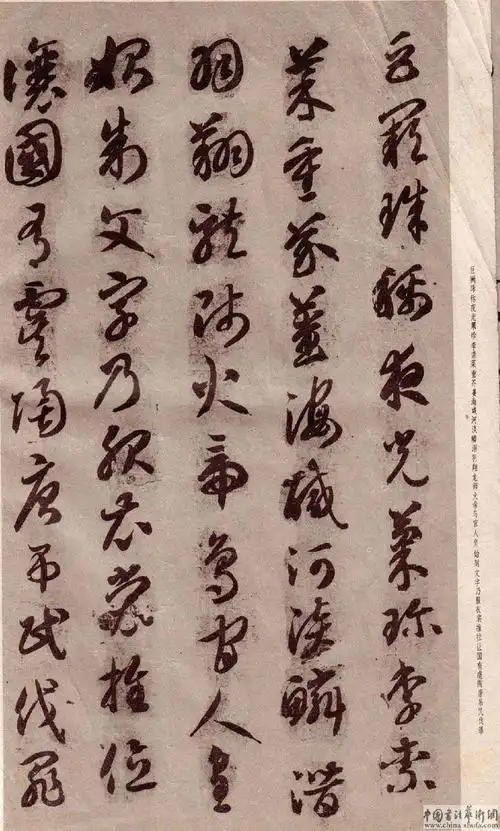 巨阙珠称夜光果珍李柰菜重芥姜海咸河淡鳞潜羽翔龙师火帝鸟官人皇始制文字乃服衣裳推位让国有虞陶唐吊民伐罪
巨闕珠稱夜光菓珎李柰
菜重芥薑海鹹河淡鱗潛
羽翔龍師火帝鳥官人皇
始制文字乃服衣裳推位
讓國有虞陶唐弔民伐罪
中國書法藝術網
www.china-shufa.com